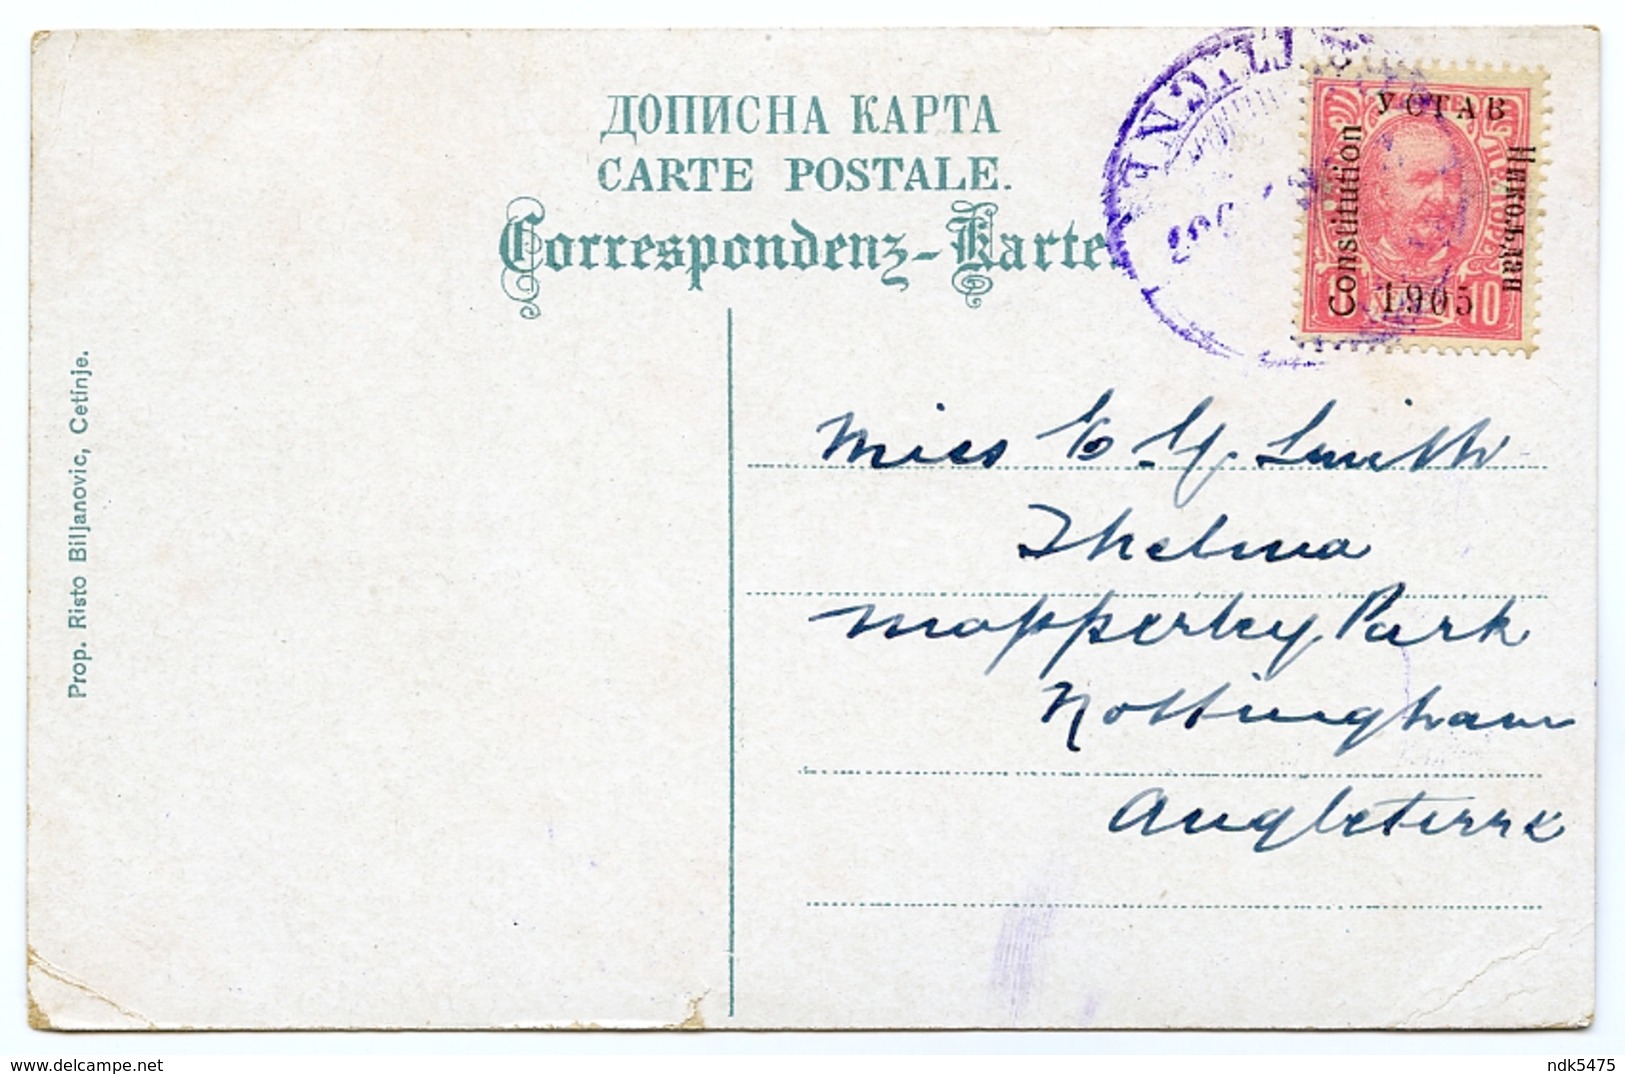 ДОПИСНА КАРТА
CARTE POSTALE.
Correspondenz-Karte
УСТАВ
Constitution
Никољдан
1905
10
Prop. Risto Biljanovic, Cetinje.
Miss E. Y. Smith
Thelma
Mapperley Park
Nottingham
Angleterre
delcampe.net
ndk5475